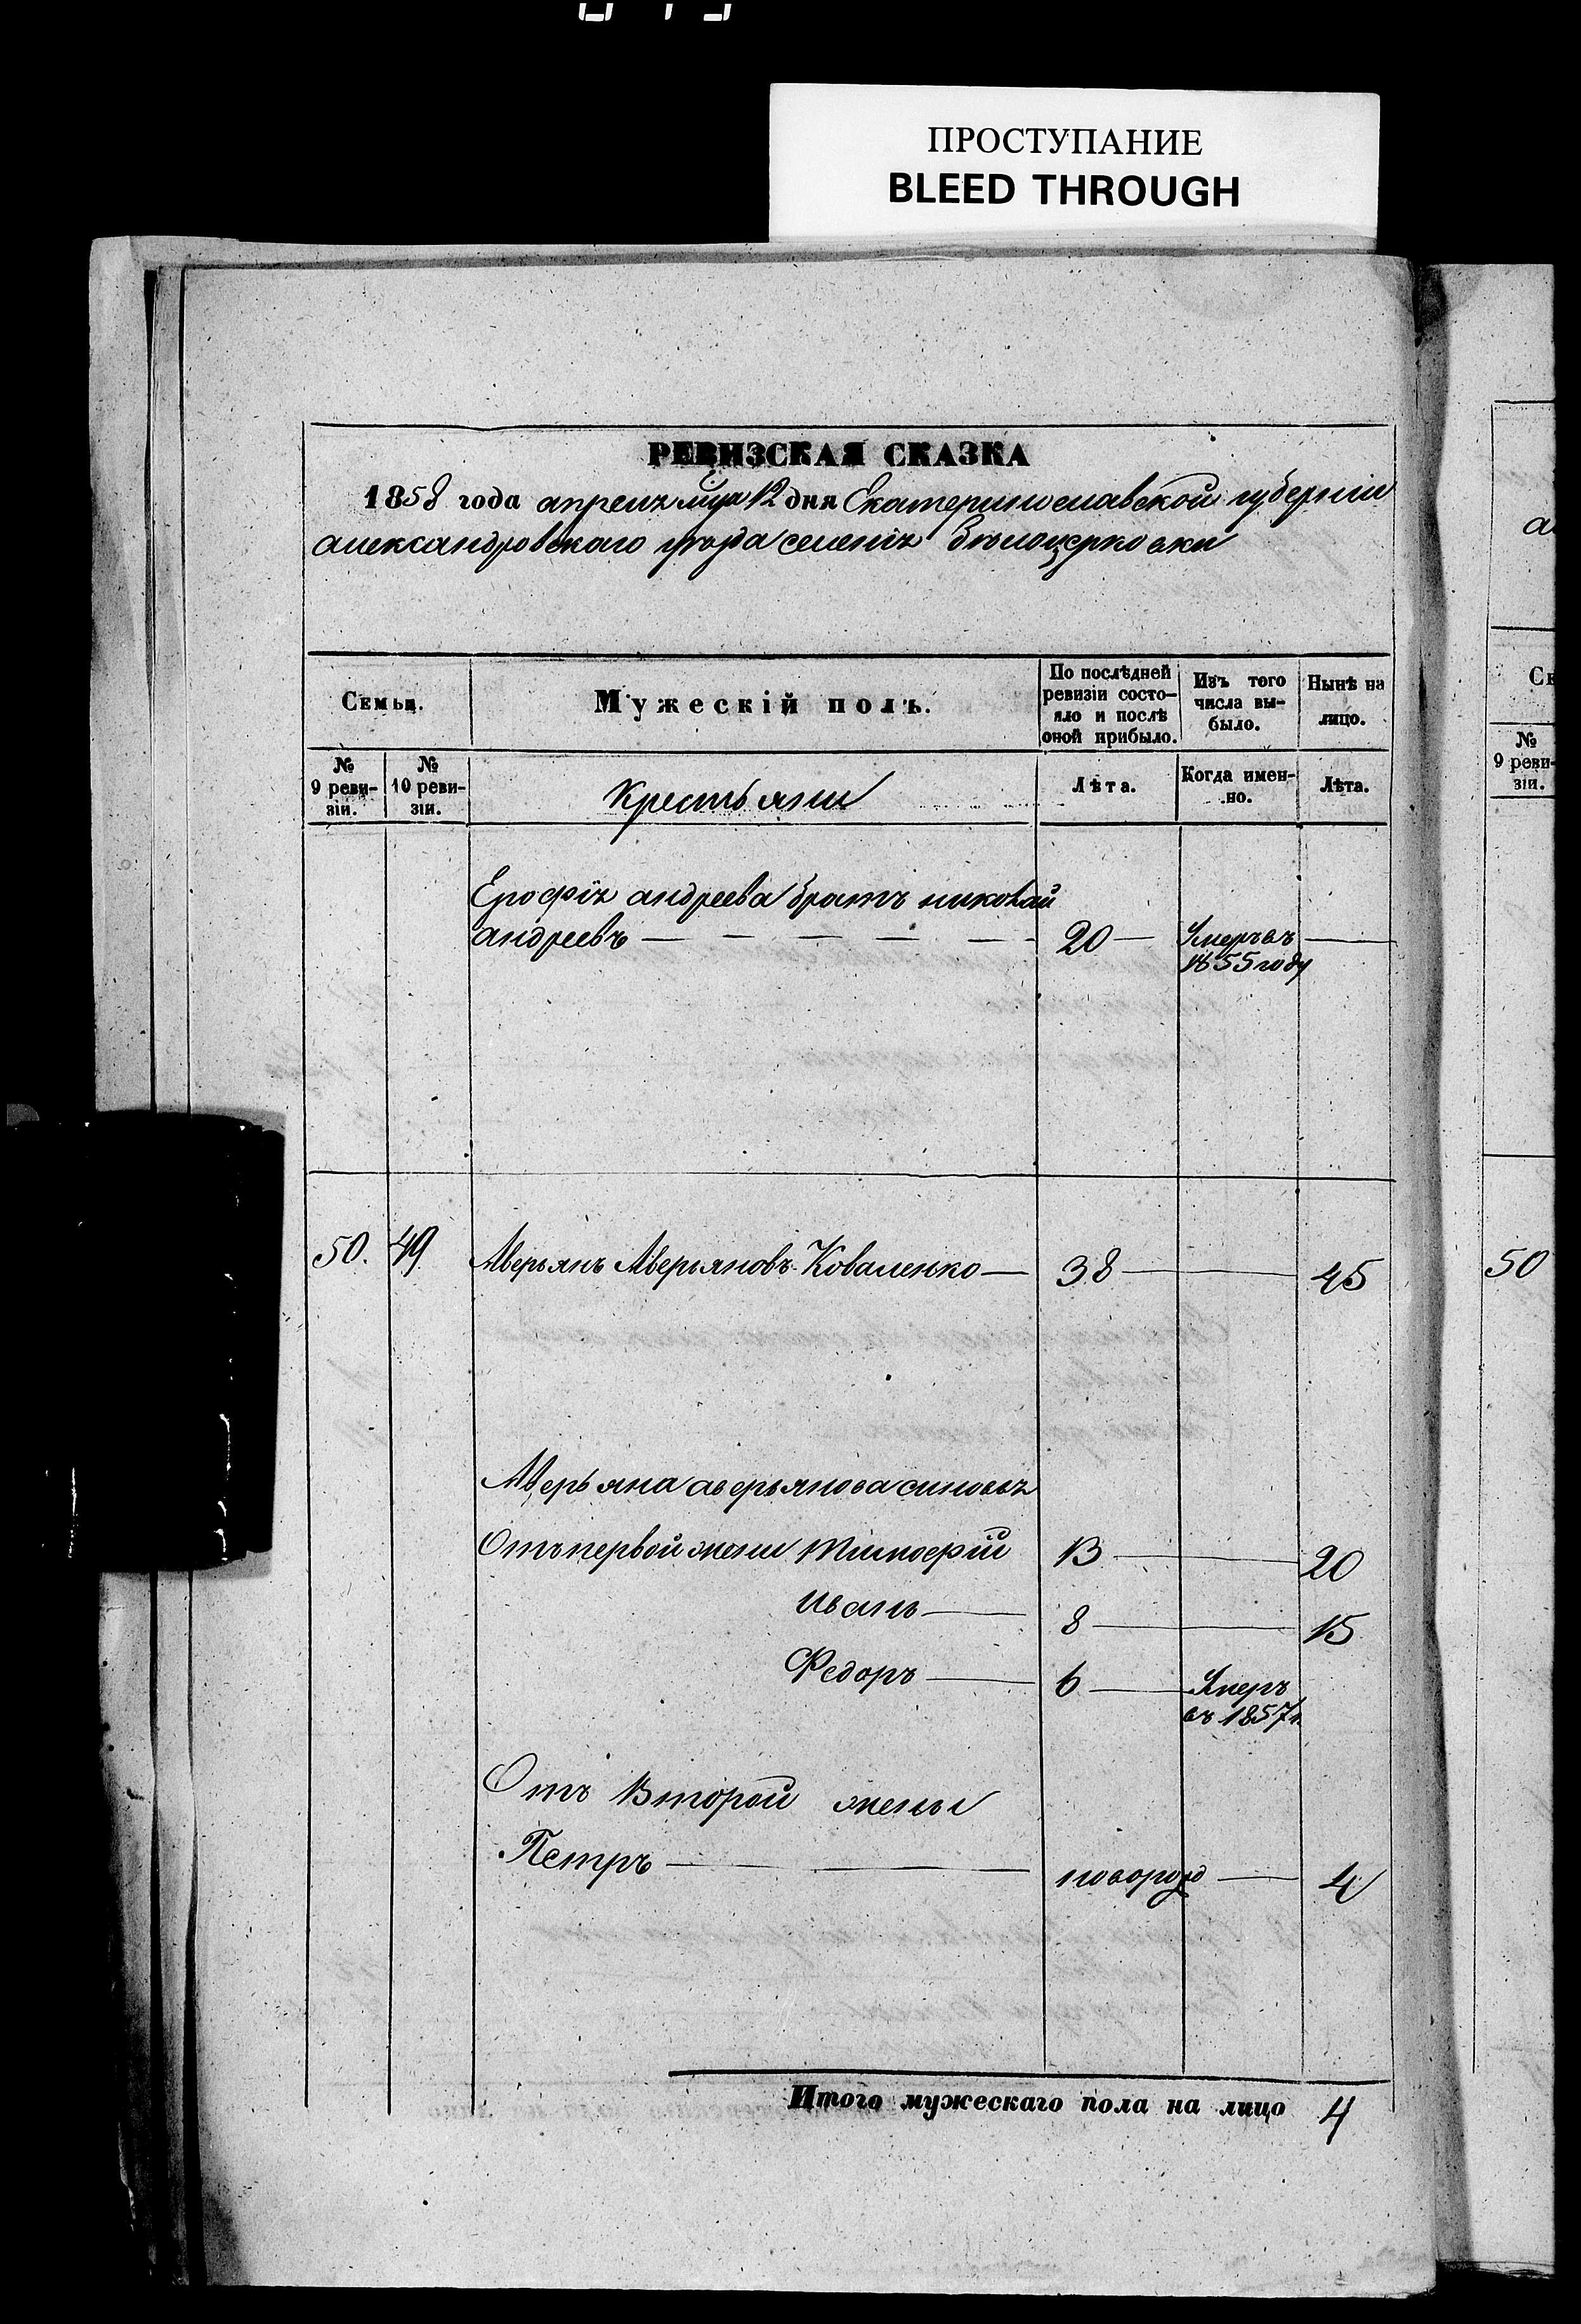 ПРОСТУПАНИЕ
BLEED THROUGH
РЕВИЗСКАЯ СКАЗКА
1858 года апреля мца 12 дня Екатеринославской губернии
александровского уѣзда селенія бѣлоцерковки
Семьи.
Мужескій полъ.
По послѣдней
ревизіи состо-
яло и послѣ
оной прибыло.
Изъ того
числа вы-
было.
Нынѣ на
лицо.
№
9 реви-
зіи.
№
10 реви-
зіи.
Крестьяни
Лѣта.
Когда имен-
но.
Лѣта.
Ерофія андреева братъ николай
андреевъ — 20 — Умеръ въ —
1855 году
50. 49 Аверьянъ Аверьяновъ Коваленко — 38 — 45
Аверьяна аверьянова синовья
Отъ первой жени Тимофій 13 — 20
Иванъ — 8 — 15
Федоръ — 6 — Умеръ
въ 1857 г.
Отъ Второй жены
Петръ — новорожд — 4
Итого мужескаго пола на лицо 4
а
Се
№
9 реви-
зіи.
50